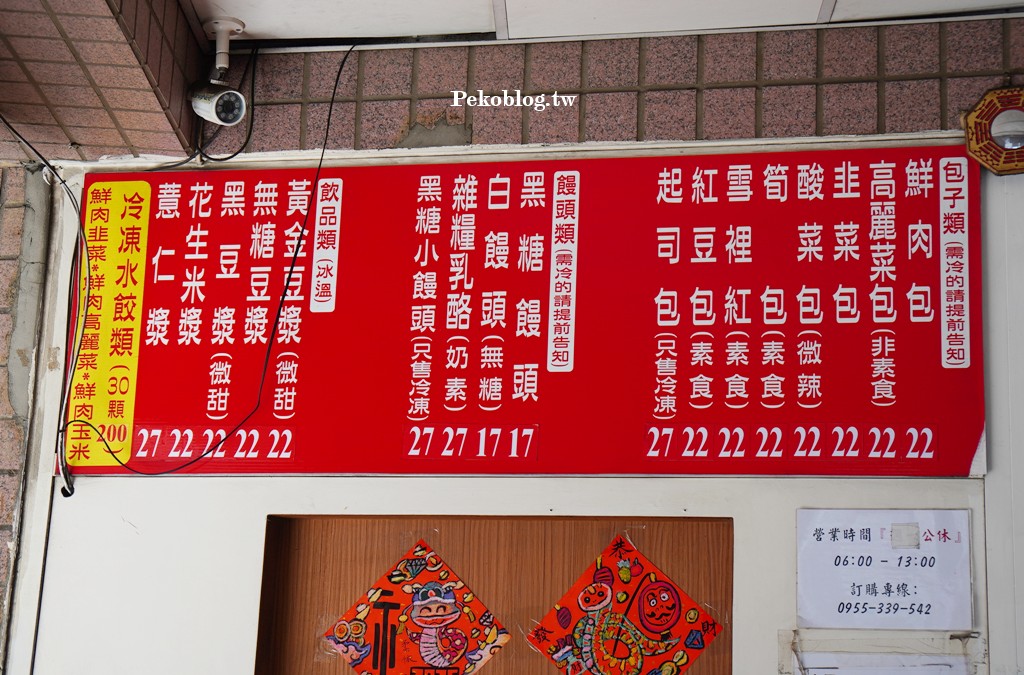 Pekoblog.tw
包子類(需冷的請提前告知)
鮮肉包 22
高麗菜包(非素食) 22
韭菜包 22
酸菜包(微辣) 22
筍包(素食) 22
雪裡紅(素食) 22
紅豆包(素食) 22
起司包(只售冷凍) 27
饅頭類(需冷的請提前告知)
黑糖饅頭 17
白饅頭(無糖) 17
雜糧乳酪(奶素) 27
黑糖小饅頭(只售冷凍) 27
飲品類(冰溫
黃金豆漿(微甜) 22
無糖豆漿 22
黑豆漿(微甜) 22
花生米漿 22
薏仁漿 27
冷凍水餃類(30顆200)
鮮肉韭菜*鮮肉高麗菜*鮮肉玉米
營業時間『公休』
06:00 - 13:00
訂購專線:
0955-339-542
恭
發
財